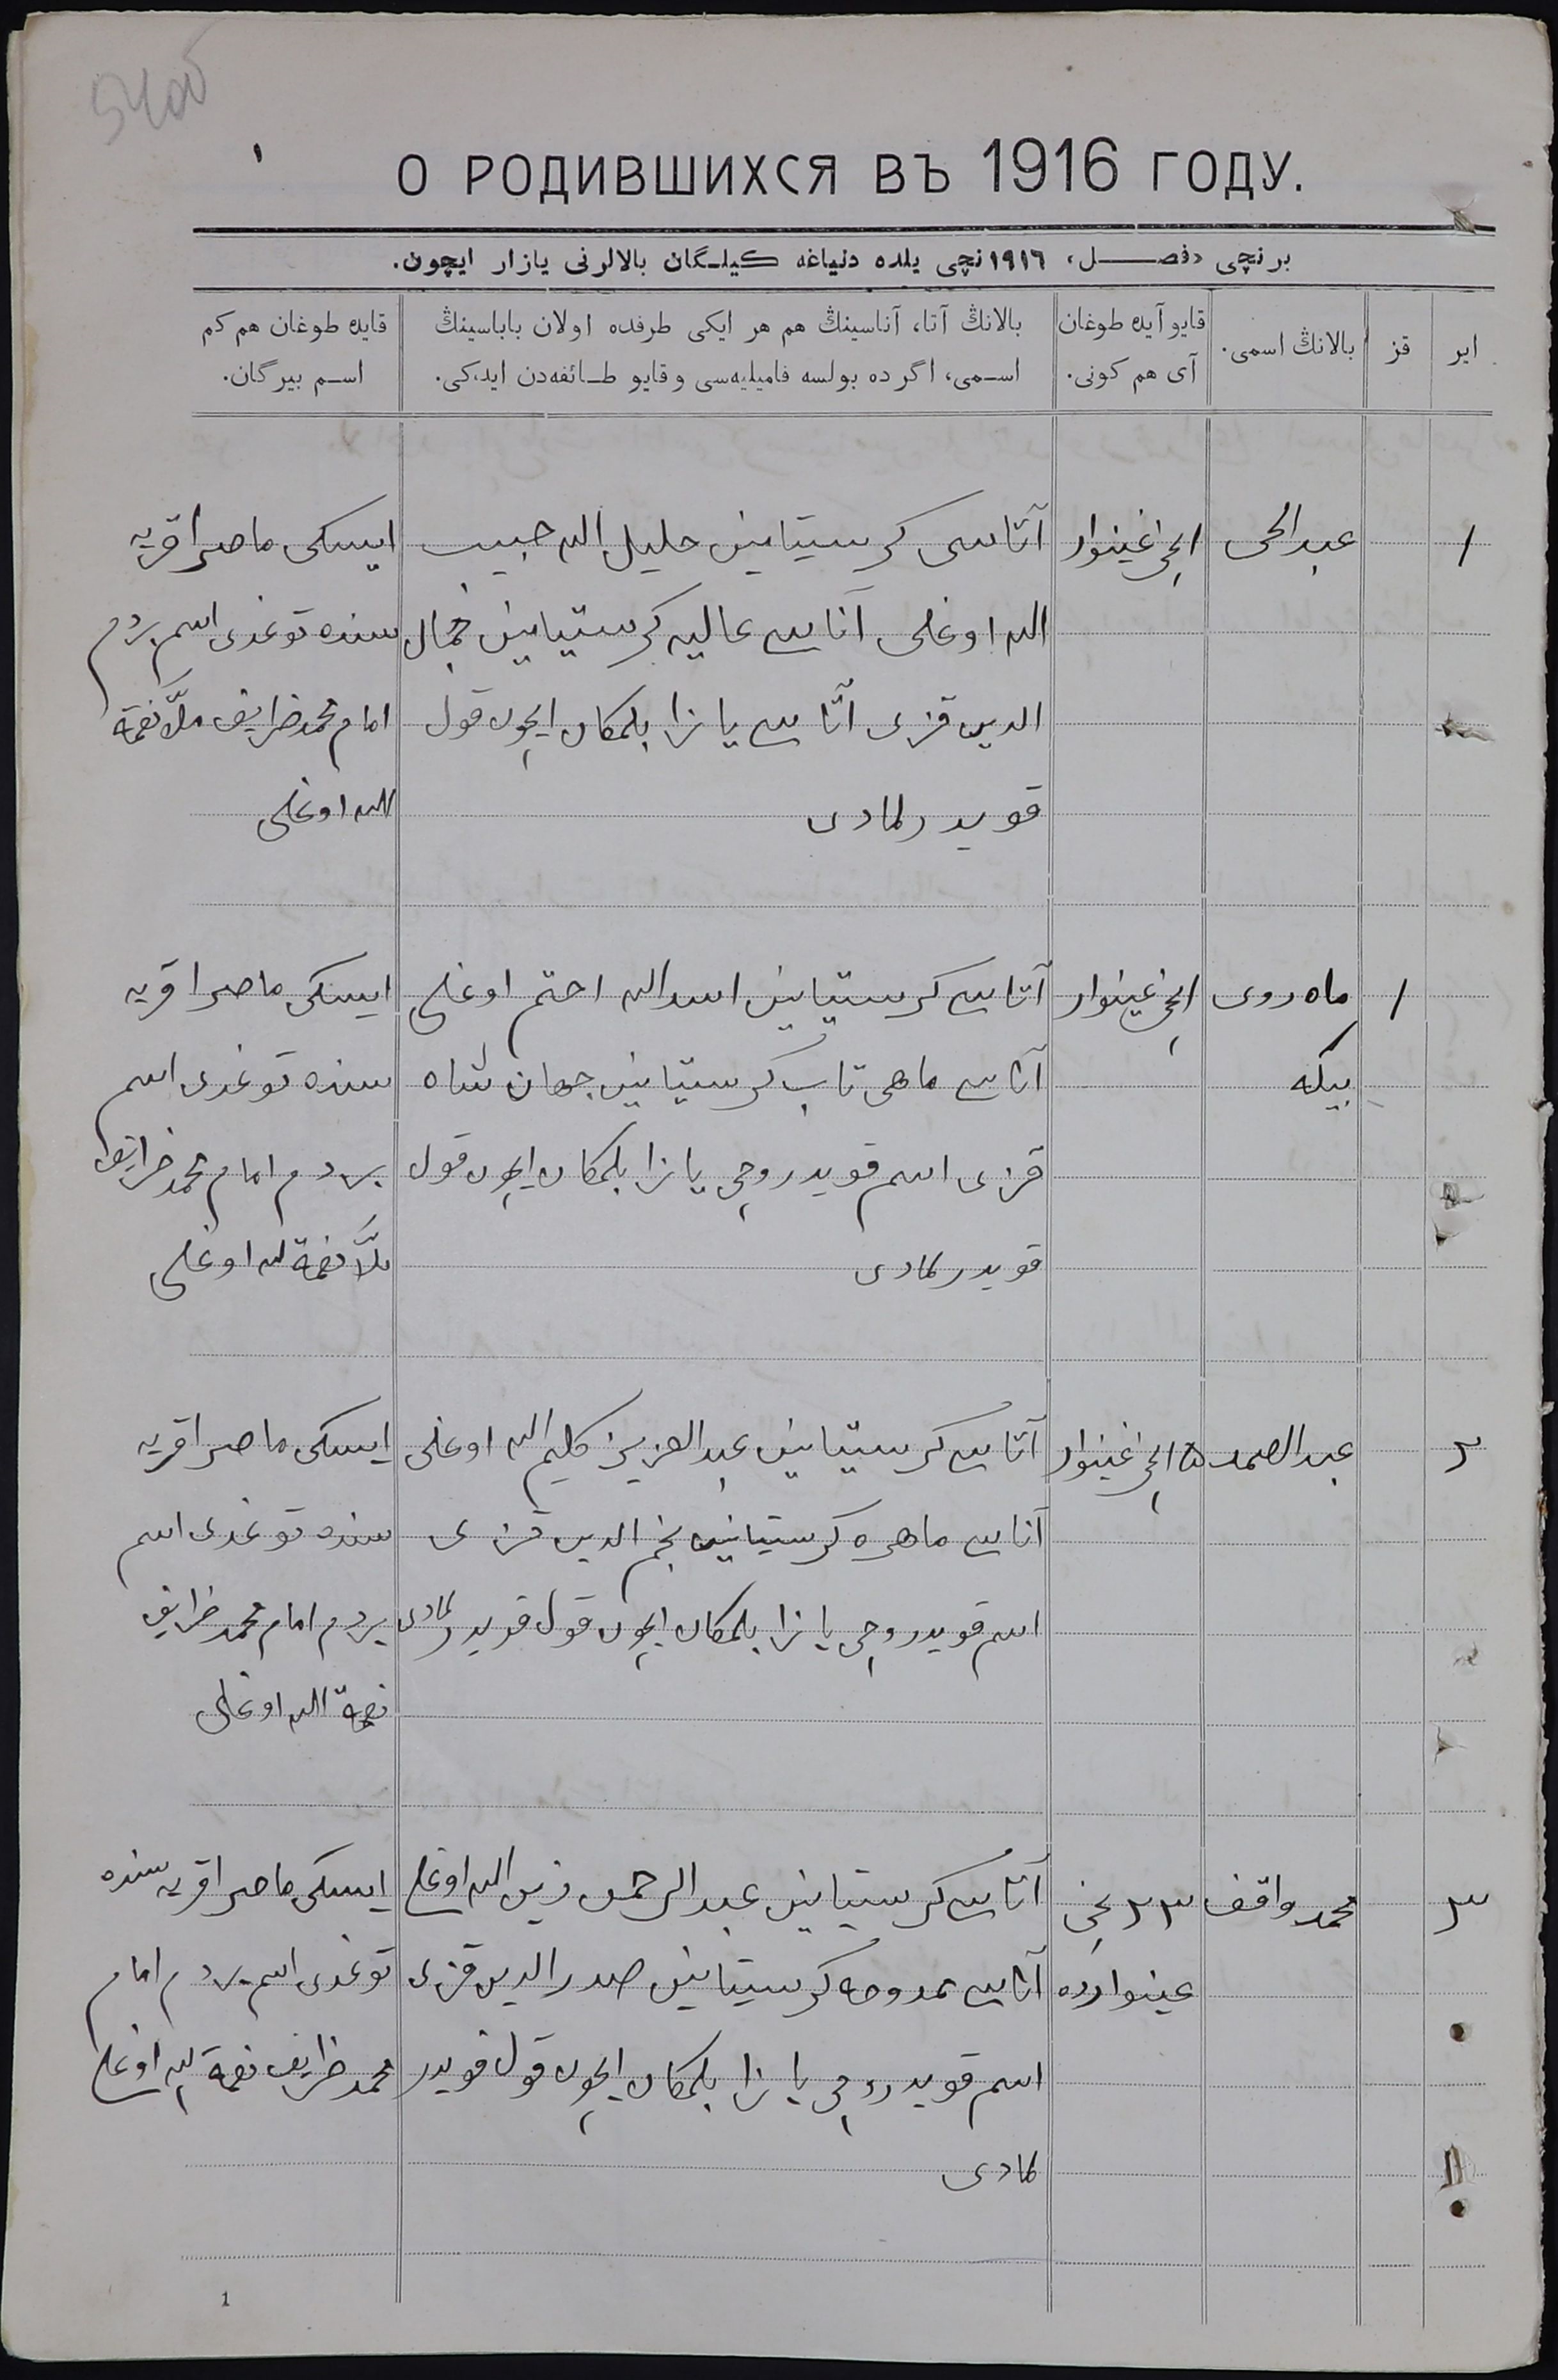 О РОДИВШИХСЯ ВЪ 1916 ГОДУ.
برنچی «فصــــل، ١٩١٦نچی یلده دنیاغه کیلـگان بالالرنی یازار ایچون.
ایر
قز
بالانڭ اسمی.
قایو آیده طوغان
آی هم کونی.
بالانڭ آتا، آناسینڭ هم هر ایکی طرفده اولان باباسینڭ
اسـمی، اگر ده بولسه فامیلیه‌سی و قایو طـائفه‌دن ایدکی.
قایده طوغان هم کم
اسـم بیرگان.
١
عبدالحی
١نچی غینوار
آتاسی کرستیانین خلیل الله حبیب
الله اوغلی آناسی عالیه کرستیانین جمال
الدین قزی آتاسی یازا بلمکان ایچون قول
قویدرلمادی
ایسکی ماصرا قریه
سنده توغدی اسم بردم
امام محمد ظریف ملا نعمة
الله اوغلی
١
ماه روی
بیکه
١نچی غینوار
آتاسی کرستیانین اسدالله احتم اوغلی
آناسی ماهی تاب کرستیانین جهان شاه
قزی اسم قویدروچی یازا بلمکان ایچون قول
قویدرلمادی
ایسکی ماصرا قریه
سنده توغدی اسم
بردم امام محمد ظریف
ملا نعمة الله اوغلی
٢
عبدالصمد
١٥نچی غینوار
آتاسی کرستیانین عبدالعزیز کلیم الله اوغلی
آناسی ماهره کرستیانین نجم الدین قزی
اسم قویدروچی یازا بلمکان ایچون قول قویدرلمادی
ایسکی ماصرا قریه
سنده توغدی اسم
بردم امام محمد ظریف
نعمة الله اوغلی
٣
محمد واقف
٢٣نچی
غینوارده
آتاسی کرستیانین عبدالرحمن زین الله اوغلی
آناسی ممدوحه کرستیانین صدرالدین قزی
اسم قویدروچی یازا بلمکان ایچون قول قویدر
لمادی
ایسکی ماصرا قریه سنده
توغدی اسم بردم امام
محمد ظریف نعمة الله اوغلی
1